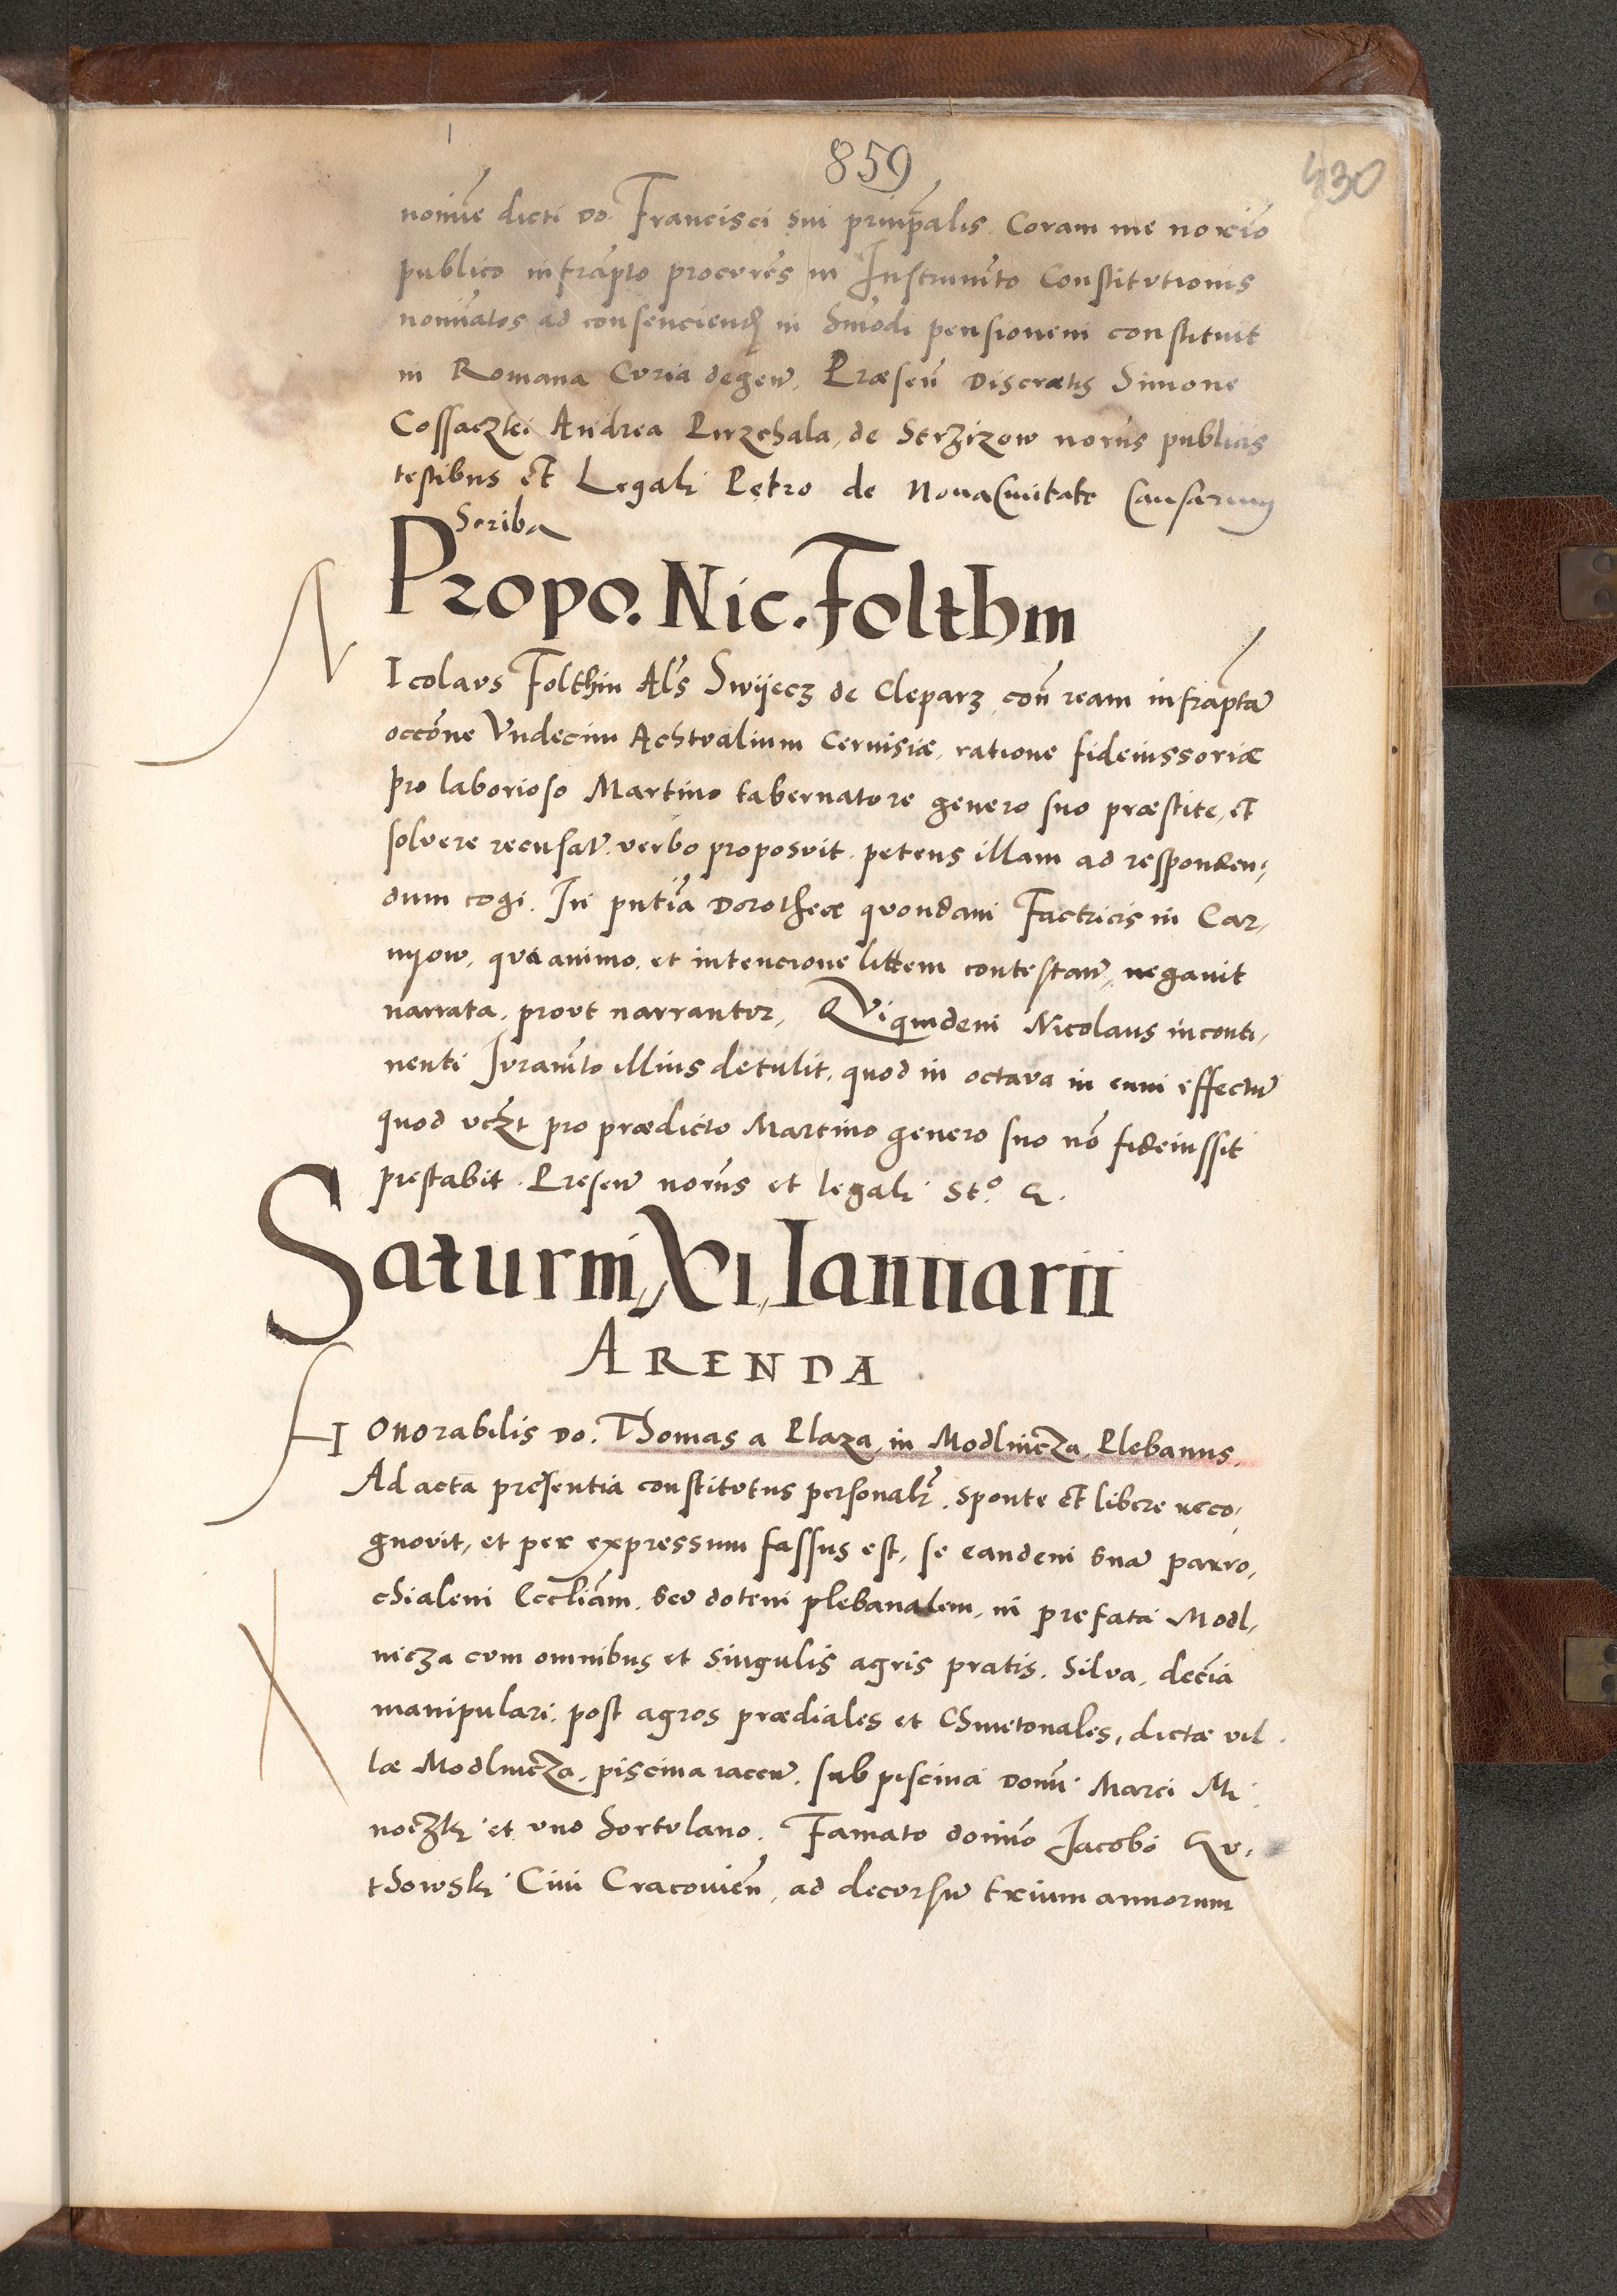 859
430
nomie dicti Do. Francisci sui principalis. Coram me notario
publico infrapto procures in Instrumto Constitutionis
nominatos ad consenciend in hmodi pensionem constituit
in Romana Curia degen. Præsen Discretis Simone
Cossaczki Andrea Przechala, de Strzizow notrijs publicis
testibus et Legali Petro de Noua Ciuitate Causarum
Scriba
Propo. Nic. Folthin
NIcolaus Folthin Als Swyecz de Cleparz, con ream infraptã
occone Vndecim Achtualium Ceruisiæ, ratione fideiussoriæ
pro laborioso Martino tabernatore genero suo præstite, et
soluere recusat. verbo proposuit. petens illam ad responden,
dum cogi. In pntia Dorotheæ quondam Factricis in Car,
nyow, quæ animo, et intencione littem contestan, negauit
narrata, prout narrantur, Quiquidem Nicolaus inconti,
nenti Iuramto illius detulit, quod in octaua in eum effectu
quod vczt pro prædicto Martino genero suo no fideiussit
prestabit. Presen notrijs et legali. Sto. &.
Saturni, XI, Ianuarii
ARENDA.
HOnorabilis Do. Thomas a Plaza, in Modlnicza, Plebanus.
Ad acta presentia constitutus personalr. sponte et libere reco,
gnovit, et per expressum fassus est, se eandem suã parro,
chialem Eccliam. seu dotem plebanalem, in prefata Modl,
nicza cum omnibus et singulis agris pratis. Silua, decia
manipulari. post agros prædiales et Chmetonales, dictæ vil
læ Modlnicza, piscina iacen. sub piscina Domi Marci Mi
noczki et vno hortulano. Famato domino Jacobo Ku,
thowski Ciui Cracouien, ad decursu trium annorum